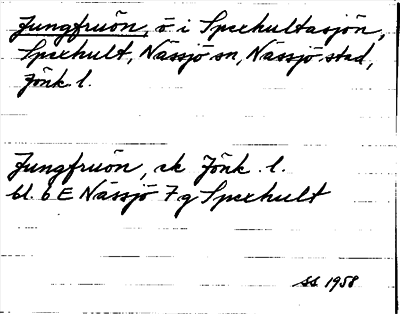 Jungfruön, ö i Spexhultasjön,
Spexhult, Nässjö sn, Nässjö stad,
Jönk l.
Jungfruön, ek Jönk. l.
bl. 6 E Nässjö 7 g Spexhult
SS 1958